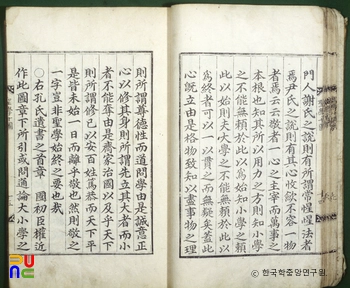 門人謝氏之說則有所謂常惺惺法者
焉尹氏之說則有其心收斂不容一物
者焉云云敬者一心之主宰而萬事之
本根也知其所以用力之方則知小學
之不能無賴於此以爲始知小學之賴
此以始則夫大學之不能無賴於此以
爲終者可以一以貫之而無疑矣蓋此
心旣立由是格物致知以盡事物之理
則所謂尊德性而道問學由是誠意正
心以修其身則所謂先立其大者而小
者不能奪由是齊家治國以及乎天下
則所謂修己以安百姓篤恭而天下平
是皆未始一日而離乎敬也然則敬之
一字豈非聖學始終之要也哉
○右孔氏遺書之首章 國初臣權近
作此圖章下所引或問通論大小學之
ⓒ한국학중앙연구원